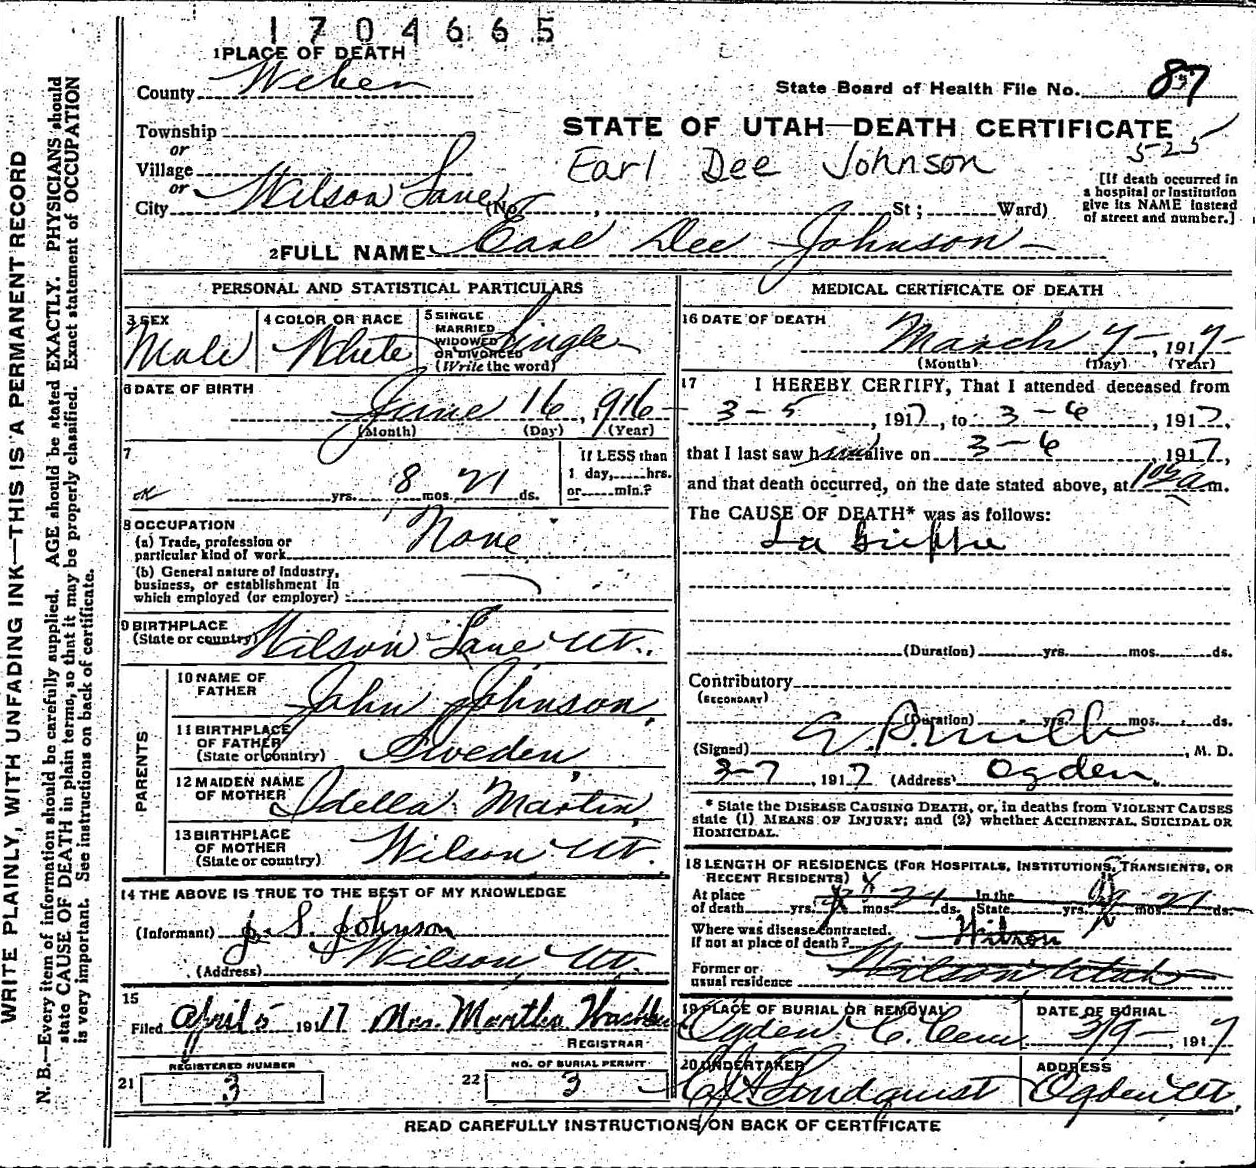 1704665
1 PLACE OF DEATH
County Weber
State Board of Health File No. 87
Township
or
STATE OF UTAH—DEATH CERTIFICATE
525
Village
or
Earl Dee Johnson
City Wilson Lane (No. , St ; Ward)
[If death occurred in
a hospital or institution
give its NAME instead
of street and number.]
2 FULL NAME Earl Dee Johnson
PERSONAL AND STATISTICAL PARTICULARS
3 SEX
Male
4 COLOR OR RACE
White
5 SINGLE
MARRIED
WIDOWED
OR DIVORCED
(Write the word)
Single
6 DATE OF BIRTH
June 16, 1916
(Month) (Day) (Year)
7
yrs. 8 mos. 21 ds.
If LESS than
1 day, hrs.
or min.?
8 OCCUPATION
(a) Trade, profession or
particular kind of work None
(b) General nature of Industry,
business, or establishment in
which employed (or employer)
9 BIRTHPLACE
(State or country) Wilson Lane Ut.
PARENTS
10 NAME OF
FATHER John Johnson
11 BIRTHPLACE
OF FATHER
(State or Country) Sweden
12 MAIDEN NAME
OF MOTHER Idella Martin
13 BIRTHPLACE
OF MOTHER
(State or country) Wilson Ut.
14 THE ABOVE IS TRUE TO THE BEST OF MY KNOWLEDGE
(Informant) J. S. Johnson
(Address) Wilson, Ut.
15
Filed April 5 1917 Mrs. Martha
REGISTRAR
REGISTERED NUMBER
21 3
NO. OF BURIAL PERMIT
22 3
MEDICAL CERTIFICATE OF DEATH
16 DATE OF DEATH
March 7, 1917
(Month) (Day) (Year)
17 I HEREBY CERTIFY, That I attended deceased from
3-5, 1917, to 3-6, 1917,
that I last saw him alive on 3-6, 1917,
and that death occurred, on the date stated above, at m.
The CAUSE OF DEATH* was as follows:
La Grippe
(Duration) yrs. mos. ds.
Contributory
(SECONDARY)
(Duration) yrs. mos. ds.
(Signed) , M. D.
3-7, 1917 (Address) Ogden.
* State the DISEASE CAUSING DEATH, or, in deaths from VIOLENT CAUSES
state (1) MEANS OF INJURY; and (2) whether ACCIDENTAL, SUICIDAL OR
HOMICIDAL.
18 LENGTH OF RESIDENCE (FOR HOSPITALS, INSTITUTIONS, TRANSIENTS, OR
RECENT RESIDENTS)
At place
of death yrs. mos. 21 ds. In the
State yrs. mos. 21 ds.
Where was disease contracted.
if not at place of death? Wilson
Former or
usual residence Wilson Utah
19 PLACE OF BURIAL OR REMOVAL
Ogden C. Cem.
DATE OF BURIAL
3/9-, 1917
20 UNDERTAKER
Lindquist
ADDRESS
Ogden Ut.
READ CAREFULLY INSTRUCTIONS ON BACK OF CERTIFICATE
WRITE PLAINLY, WITH UNFADING INK—THIS IS A PERMANENT RECORD
N. B.—Every item of information should be carefully supplied. AGE should be stated EXACTLY. PHYSICIANS should
state CAUSE OF DEATH in plain terms, so that it may be properly classified. Exact statement of OCCUPATION
is very important. See instructions on back of certificate.